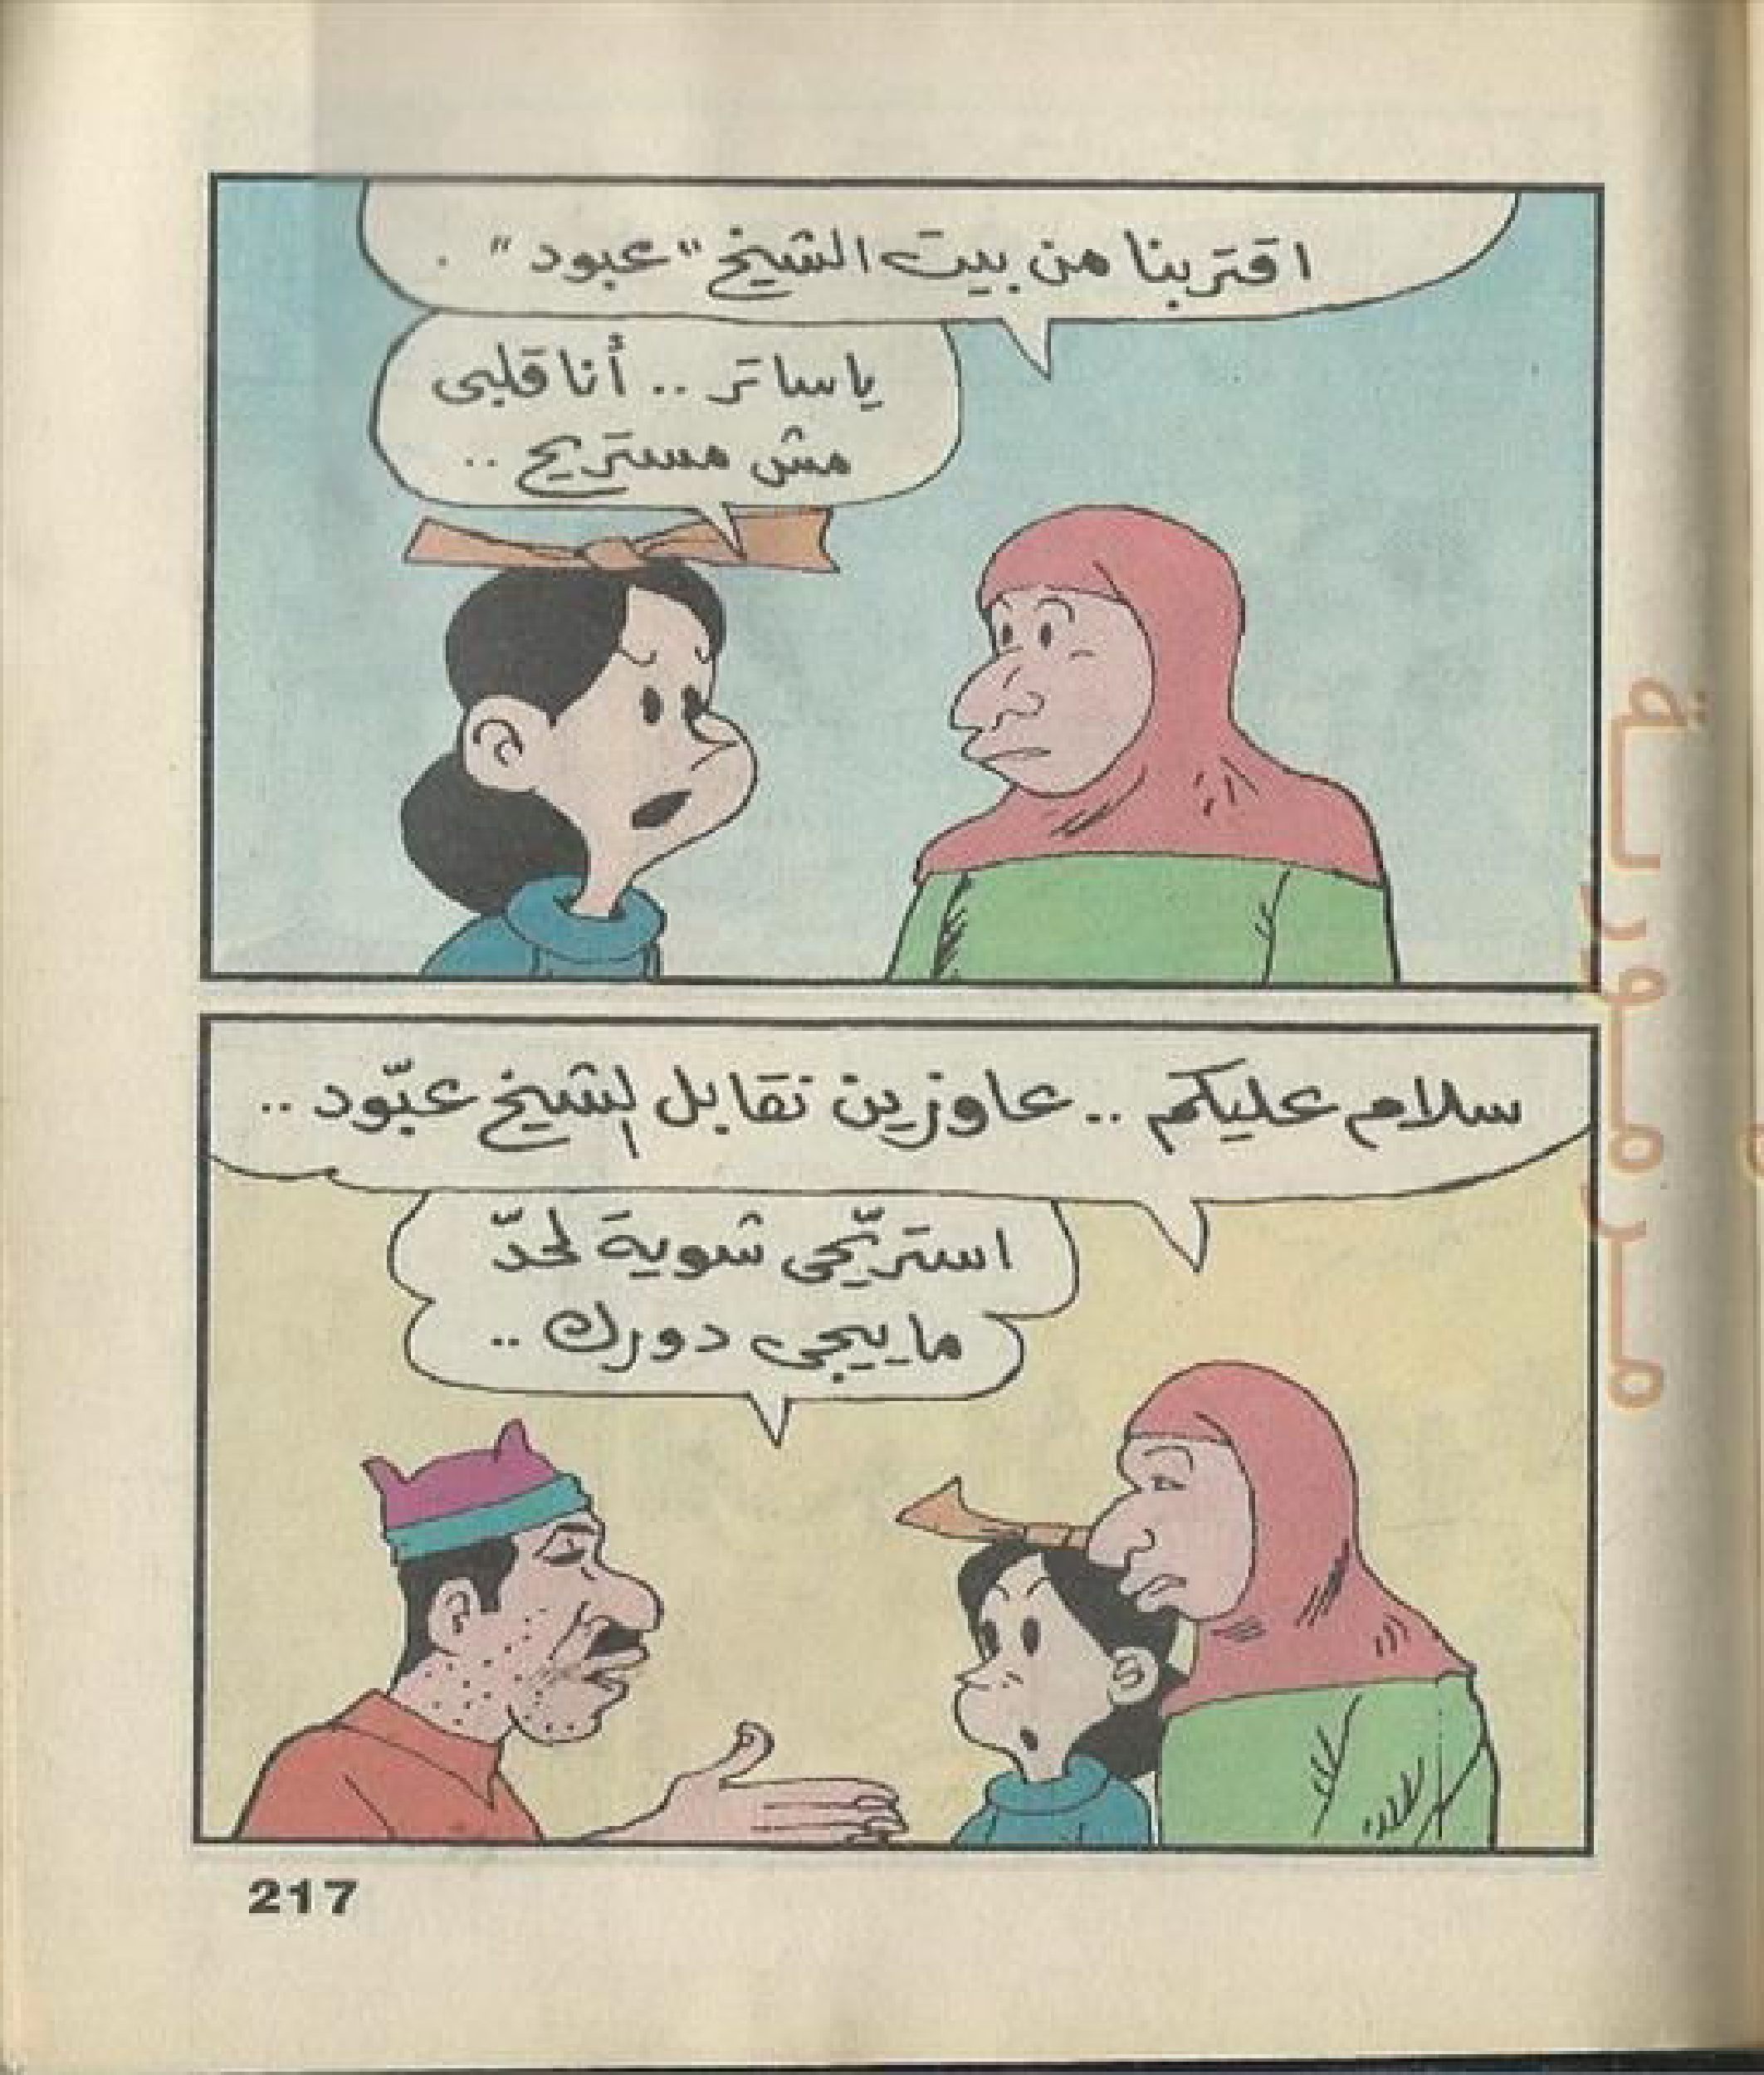 اقتربنا من بيت الشيخ "عبود" .
ياساتر .. أنا قلبى
مش مستريح ..
سلام عليكم .. عاوزين نقابل الشيخ عبّود ..
استريّحى شوية لحدّ
ما ييجى دورك ..
مرمورية
217